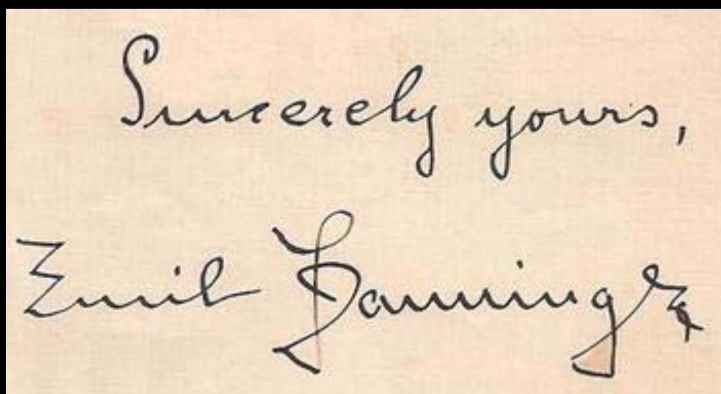 Sincerely yours,
Emil Jannings